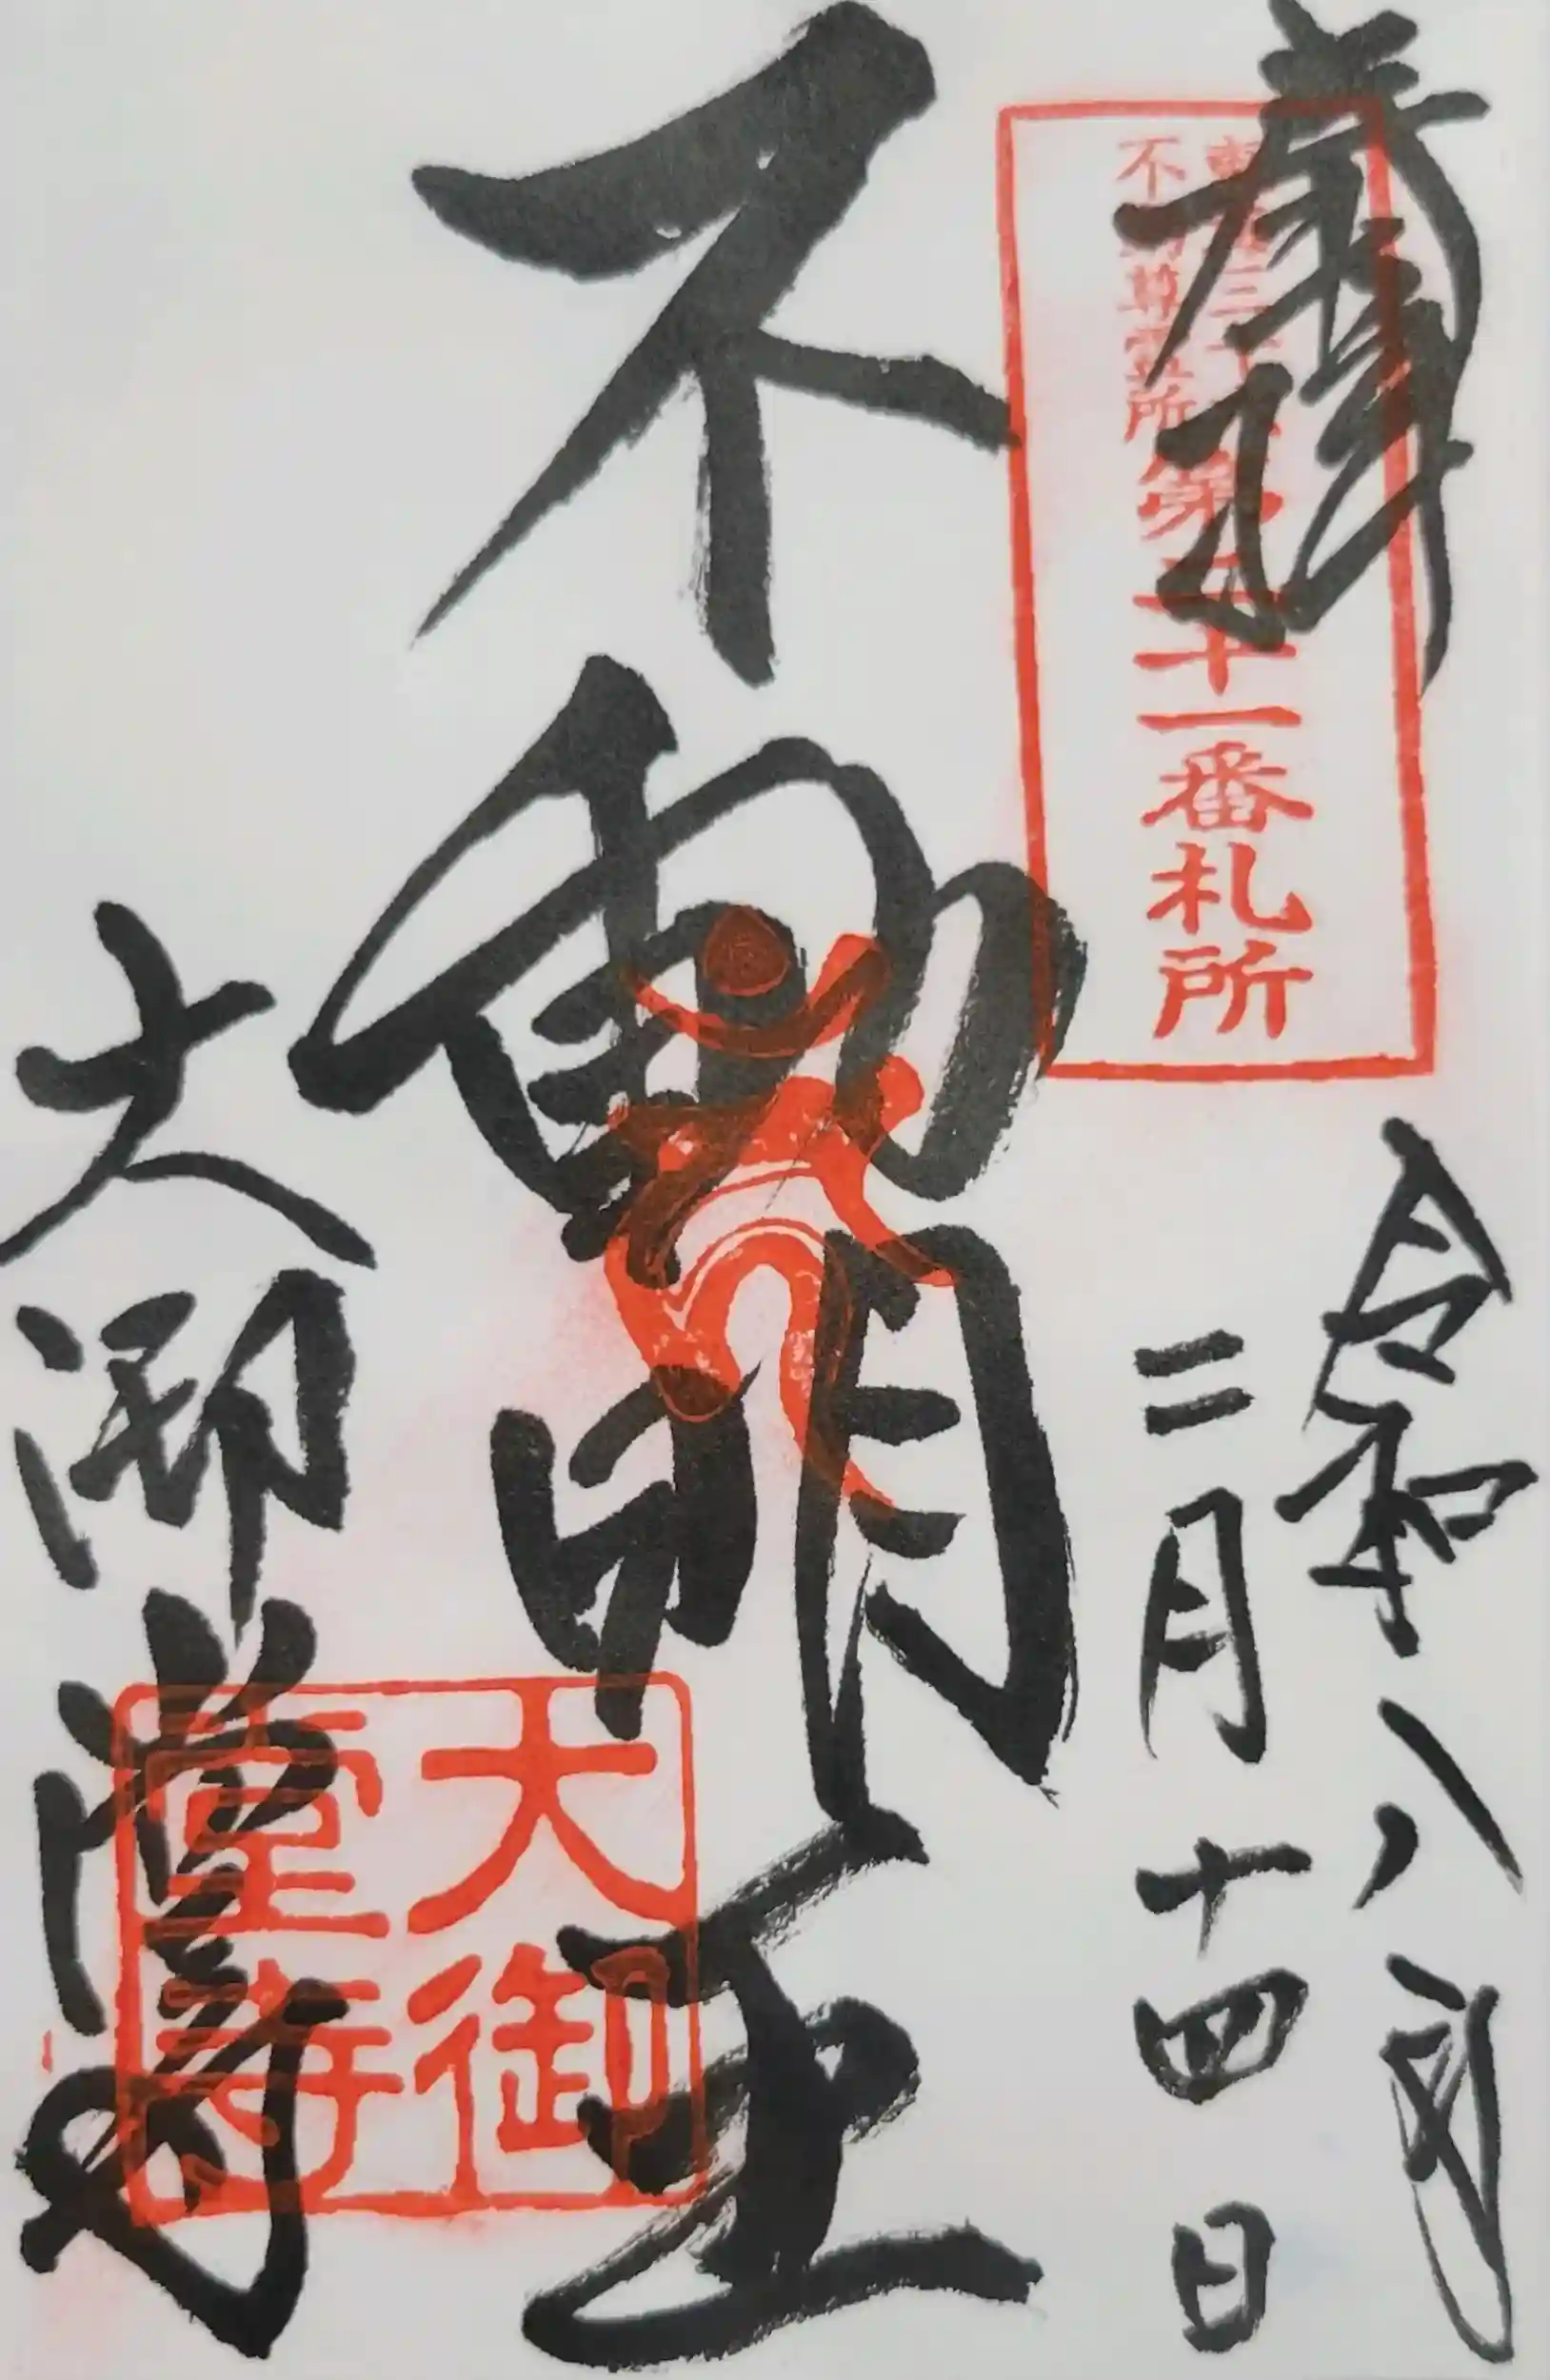 奉拝
東海三十六
不動尊霊所
第二十一番札所
令和八年
二月十四日
不動明王
大御堂寺
大御
堂寺